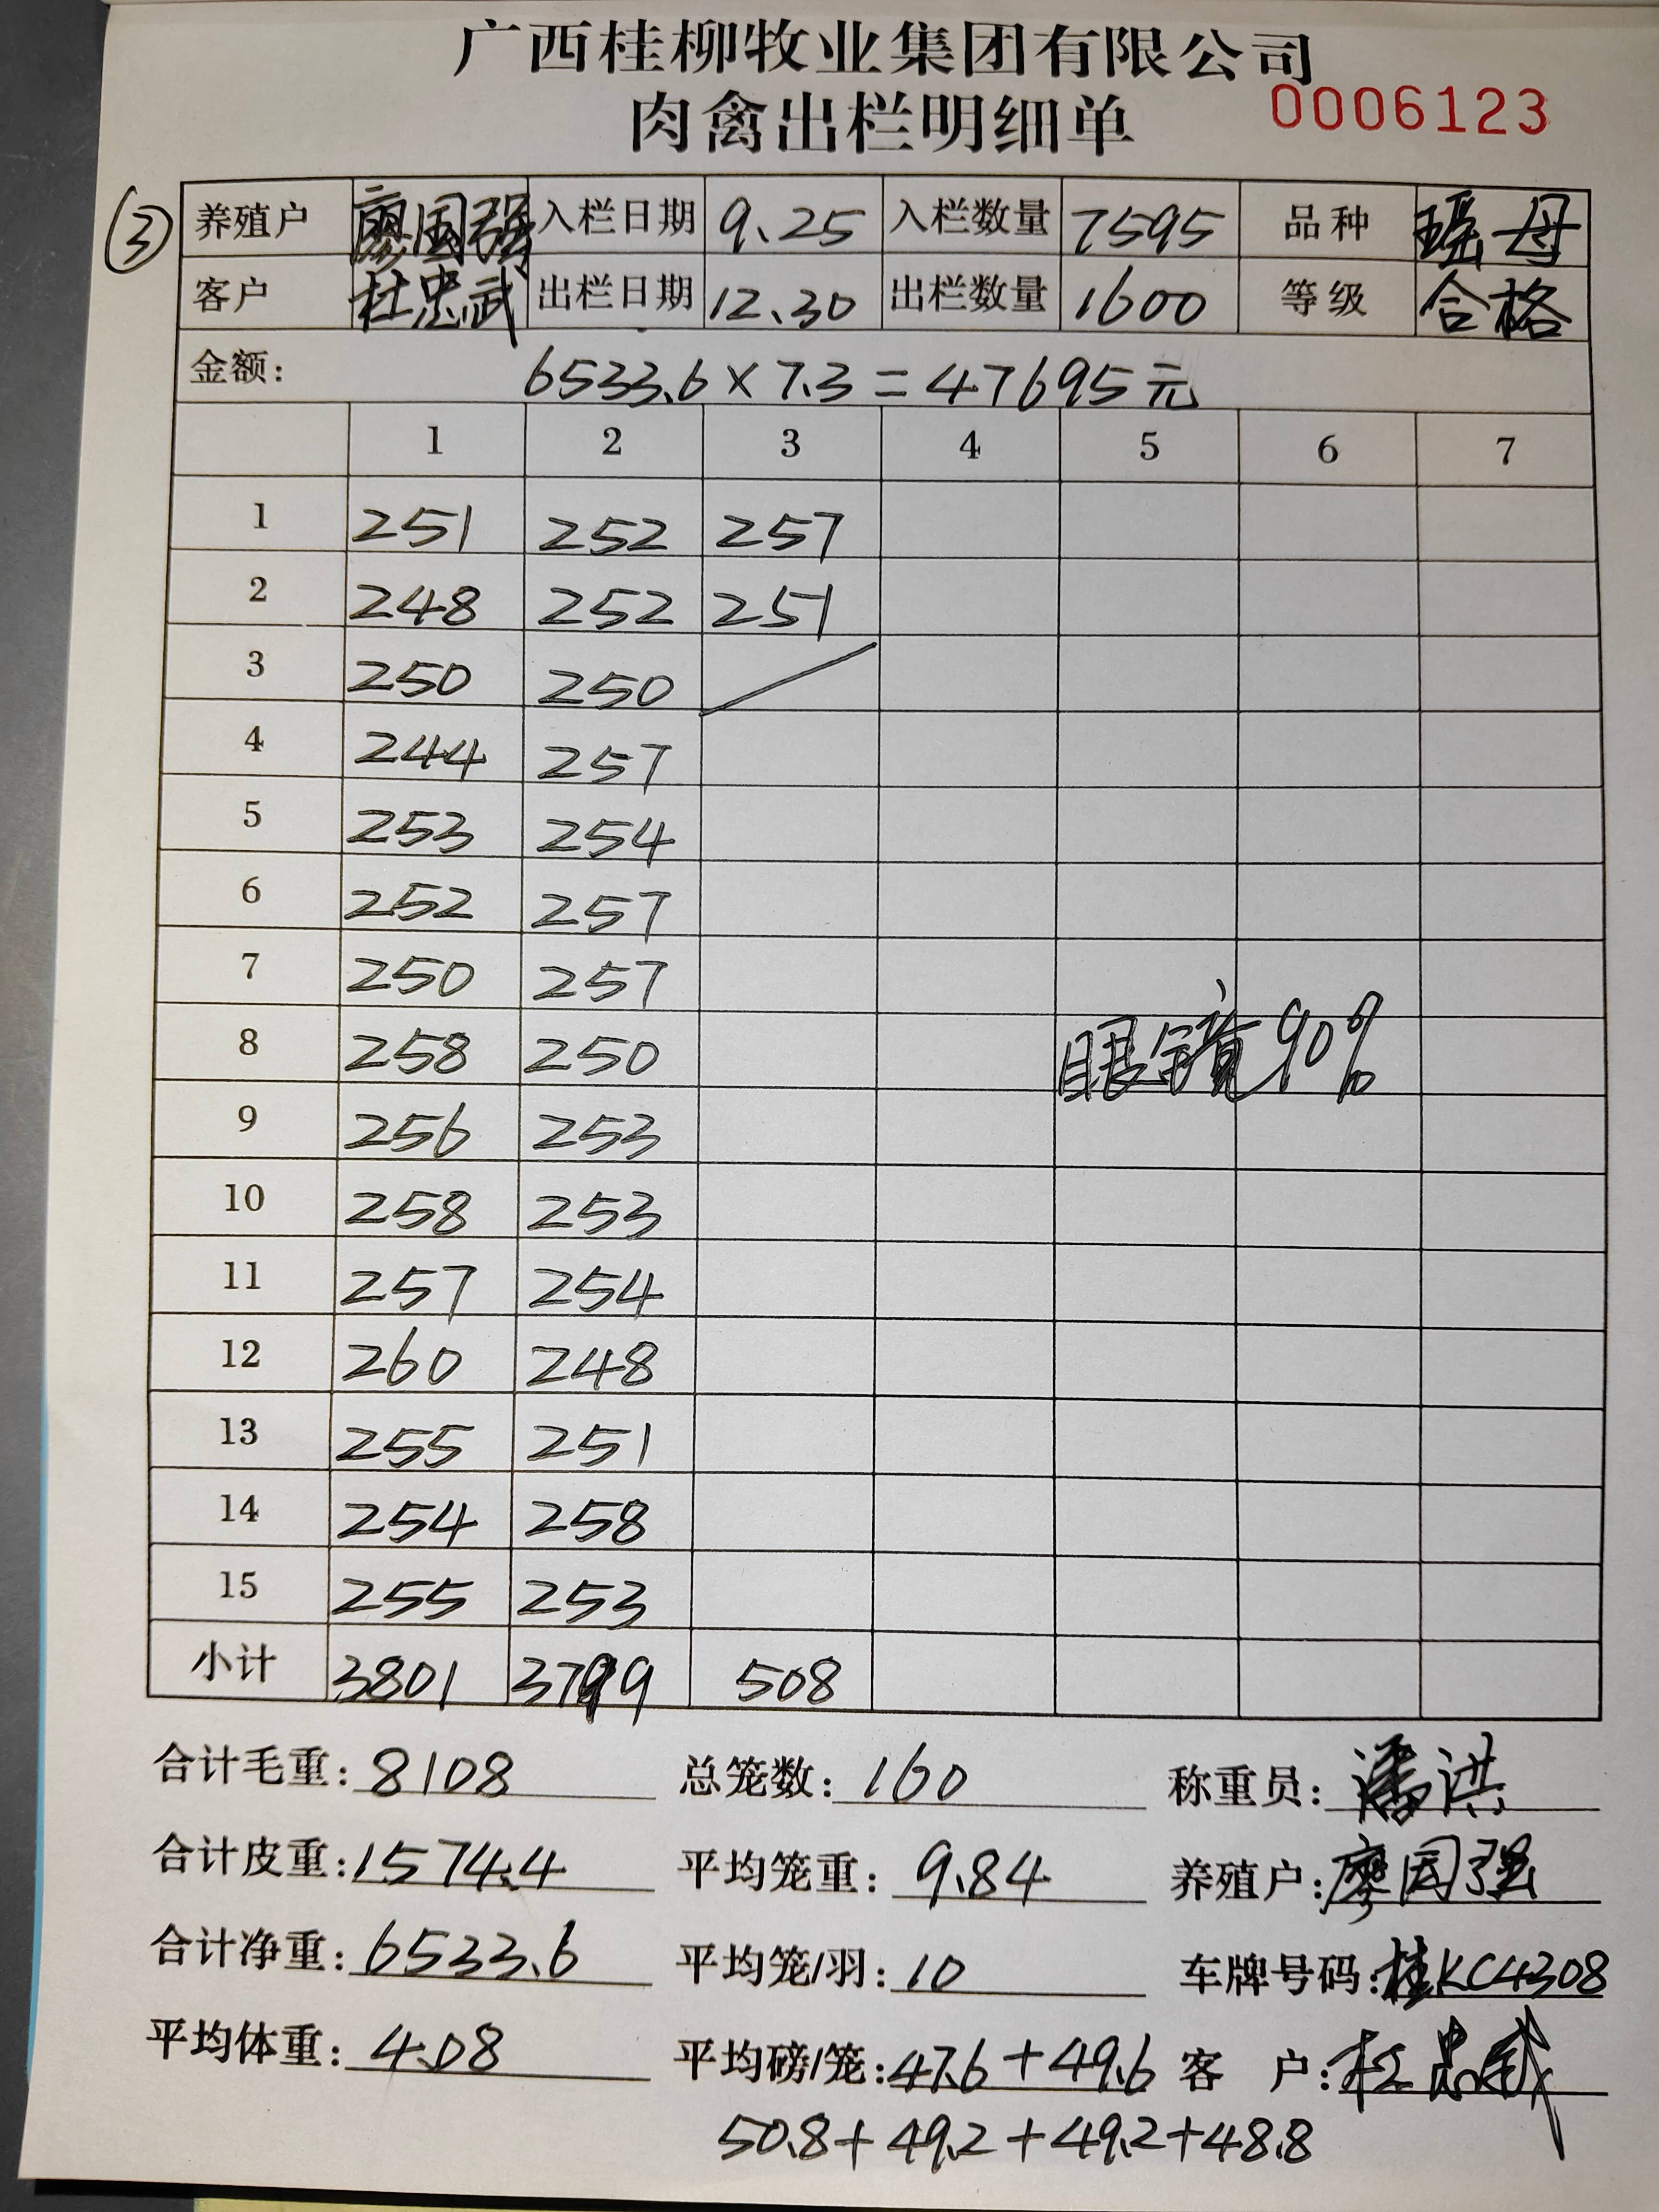 广西桂柳牧业集团有限公司
肉禽出栏明细单 0006123
③
养殖户 廖国强 入栏日期 9.25 入栏数量 7595 品种 瑶母
客户 杜忠武 出栏日期 12.30 出栏数量 1600 等级 合格
金额: 6533.6×7.3=47695元
1 2 3 4 5 6 7
1 251 252 257
2 248 252 251
3 250 250 /
4 244 257
5 253 254
6 252 257
7 250 257
8 258 250 眼镜90%
9 256 253
10 258 253
11 257 254
12 260 248
13 255 251
14 254 258
15 255 253
小计 3801 3799 508
合计毛重: 8108 总笼数: 160 称重员: 潘洪
合计皮重: 1574.4 平均笼重: 9.84 养殖户: 廖国强
合计净重: 6533.6 平均笼/羽: 10 车牌号码: 桂KC4308
平均体重: 4.08 平均磅/笼: 47.6+49.6 客 户: 杜忠武
50.8+49.2+49.2+48.8